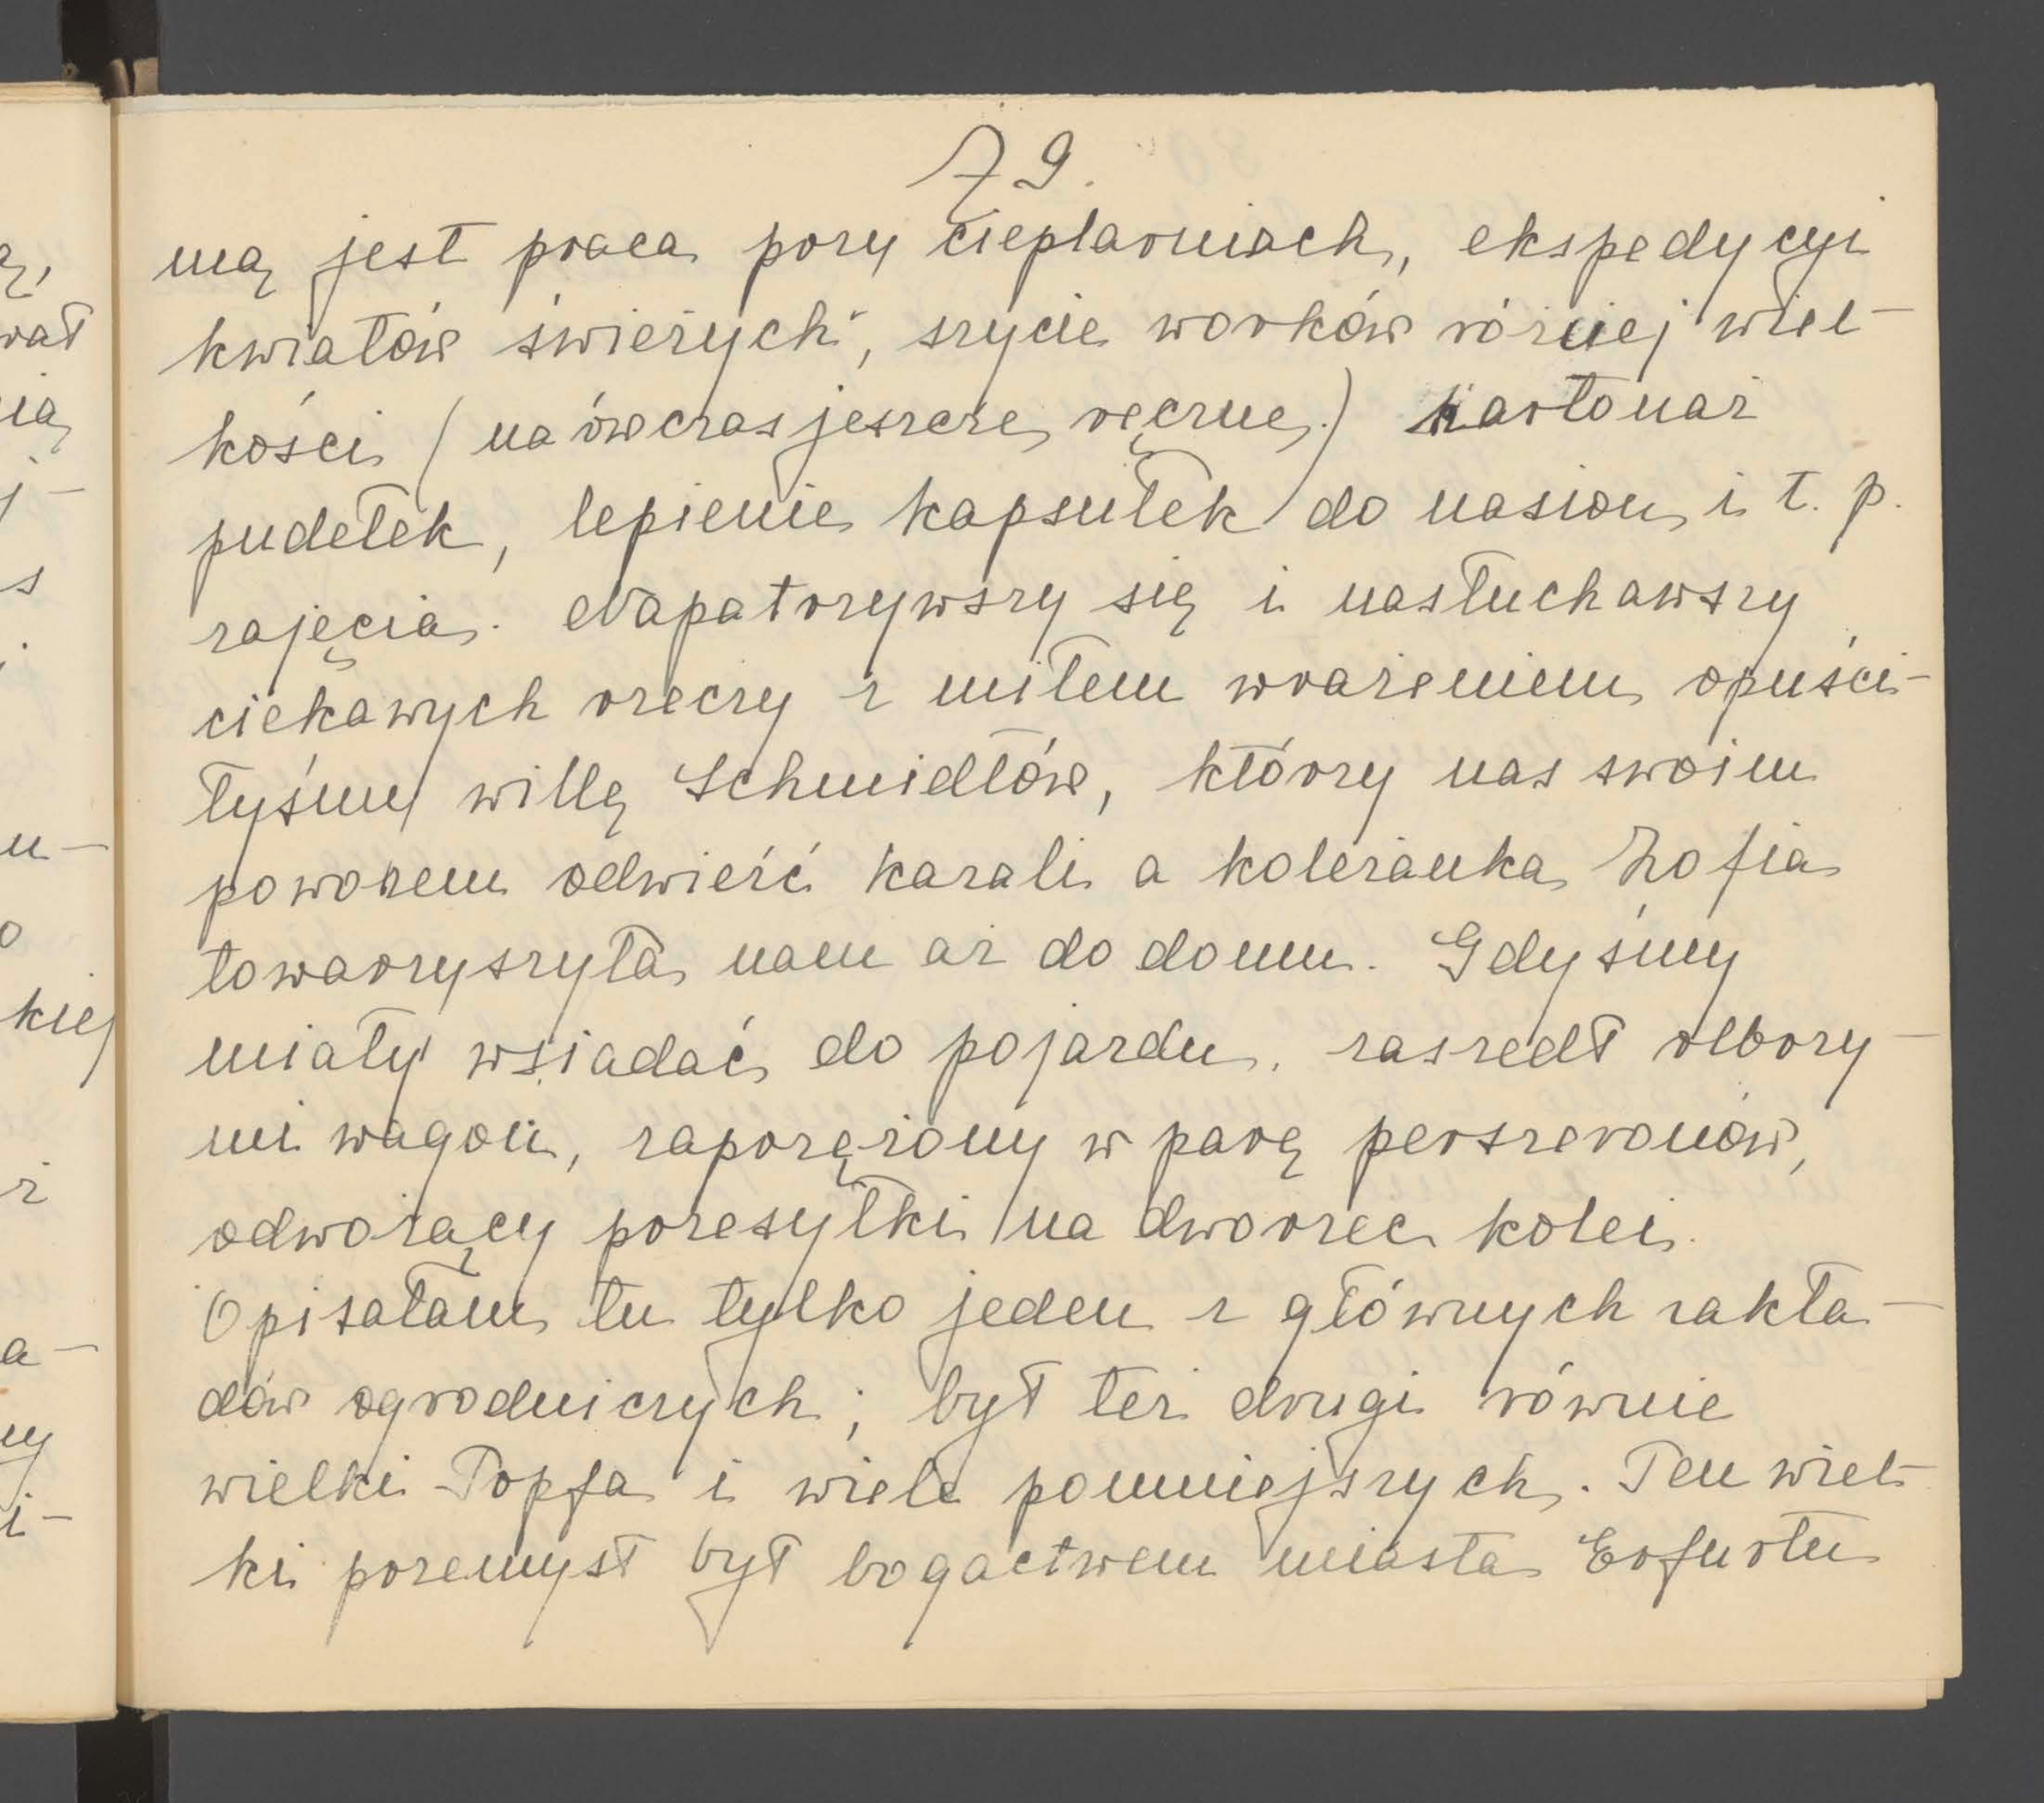 79.
ną jest praca przy cieplarniach, ekspedycyi
kwiatów świeżych, szycie worków różnej wiel-
kości (na ówczas jeszcze ręczne.) kartonaż
pudełek, lepienie kapsułek do nasion i t. p.
zajęcia. Napatrzywszy się i nasłuchawszy
ciekawych rzeczy z miłem wrażeniem opuści-
łyśmy willę Schmidtów, którzy nas swoim
powozem odwieźć kazali a koleżanka Zofia
towarzyszyła nam aż do domu. Gdyśmy
miały wsiadać do pojazdu, zaszedł olbrzy-
mi wagon, zaprzężony w parę perszeronów,
odwożący przesyłki na dworzec kolei.
Opisałam tu tylko jeden z głównych zakła-
dów ogrodniczych; był też drugi równie
wielki Topfa i wiele pomniejszych. Ten wiel-
ki przemysł był bogactwem miasta Erfurtu
rat
ią
j-
s
u-
o
kiej
ż
a-
ny
i-